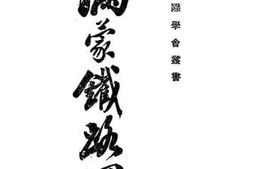 際學會叢書
滿蒙鐵路